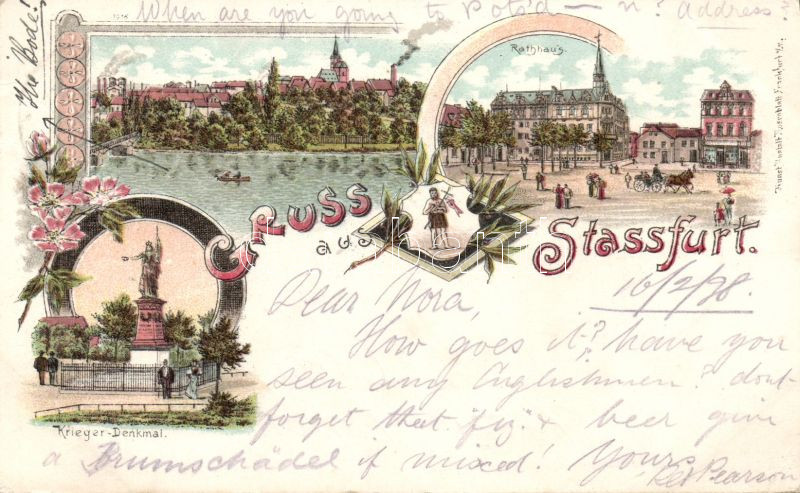 When are you going to Potsd — n? Address?
The Bode!
Rathhaus
Gruss
aus
Stassfurt.
Krieger-Denkmal.
16/2/98.
Dear Nora,
How goes it? have you
seen any Englishmen? dont
forget that "fiz" & beer give
a Brumschädel if mixed! Yours
Pearson